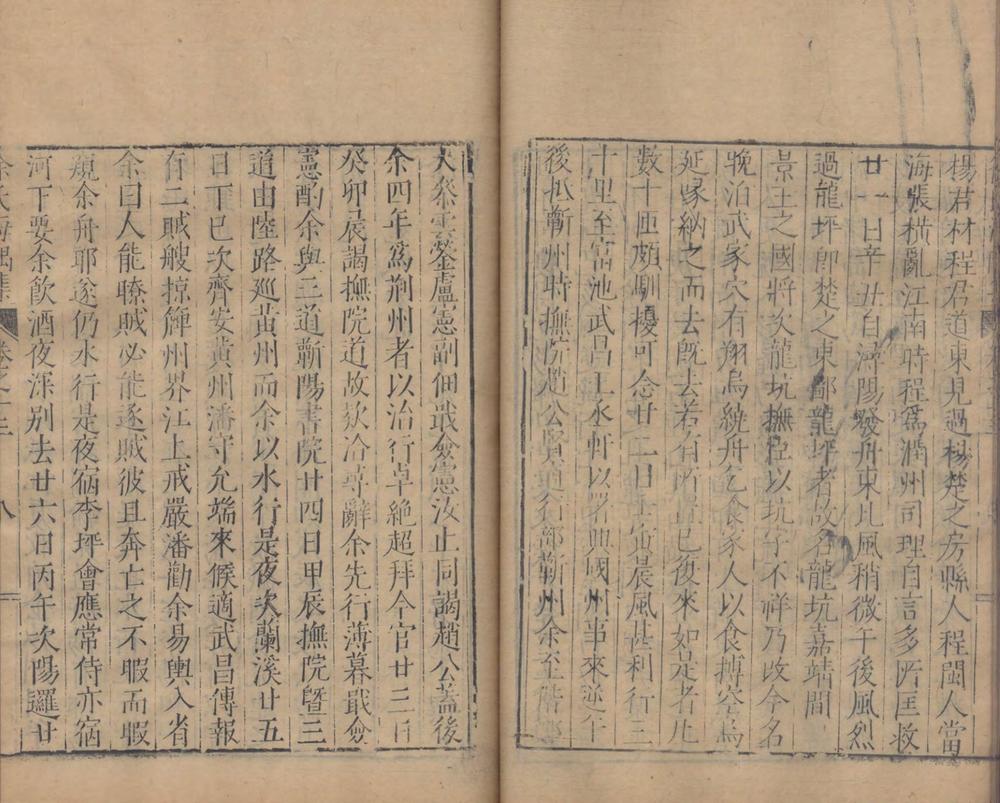 楊君材程君道東見過楊楚之房縣人程閩人當
海張橫亂江南時程爲潤州司理自言多所匡救
廿一日辛丑自潯陽發舟東北風稍微午後風烈
過龍坪即楚之東鄙龍坪者故名龍坑嘉靖間
景王之國將次龍坑撫臣以坑字不祥乃改今名
晚泊武家穴有翔烏繞舟乞食家人以食摶空烏
延喙納之而去旣去若有所留已復來如是者凡
數十匝頗馴擾可念廿二日壬寅晨風甚利行三
十里至富池武昌上水軒以署興國州事來逆午
後抵蘄州時撫院趙公
行部蘄州余至
大參
盧憲副
戢僉憲汝止同謁趙公蓋後
余四年爲荆州者以治行卓絶超拜今官廿三日
癸卯晨謁撫院道故款洽
辭余先行薄暮戢僉
憲酌余與三道蘄陽書院廿四日甲辰撫院曁三
道由陸路巡黄州而余以水行是夜次蘭溪廿五
日下巳次齊安黄州潘守允端來候適武昌傳報
有二賊艘掠
州界江上戒嚴潘勸余易輿入省
余曰人能瞭賊必能逐賊彼且奔亡之不暇而暇
覬余舟耶遂仍水行是夜宿李坪會應常侍亦宿
河下要余飲酒夜深别去廿六日丙午次陽邏廿
余氏海隅集 卷之三 八